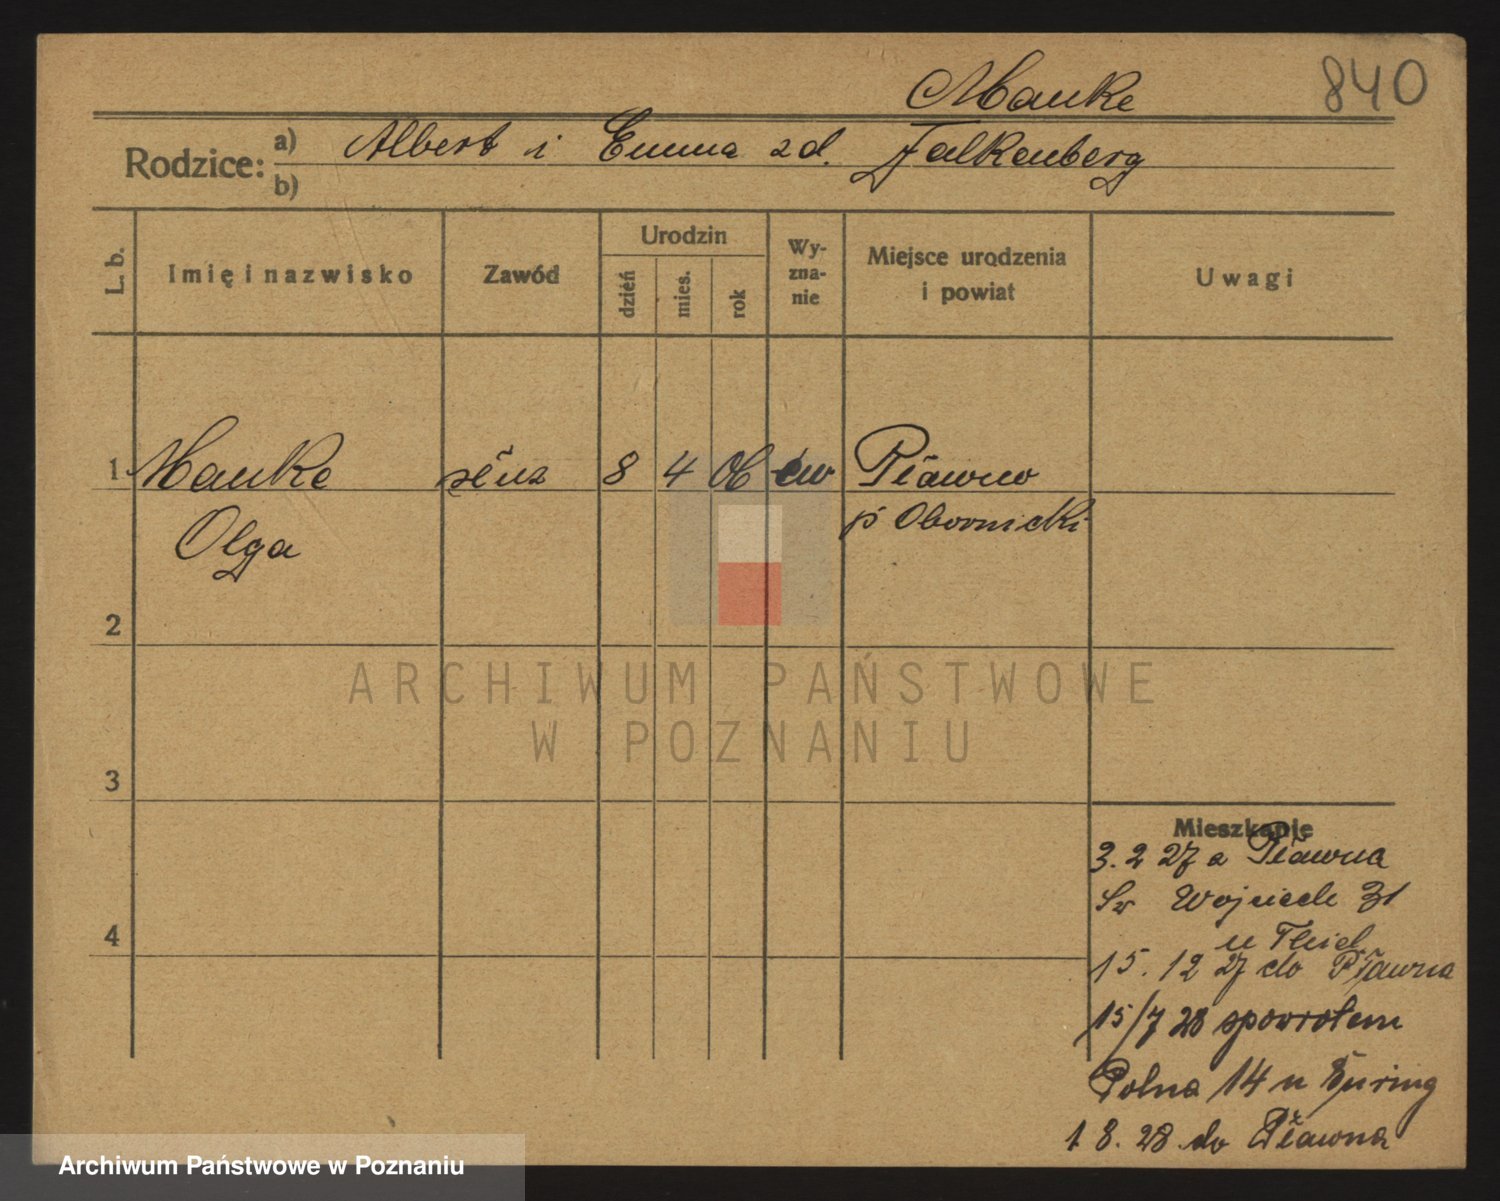 Manke
840
Rodzice: a) Albert i Emma zd. Falkenberg
b)
L. b.
Imię i nazwisko
Zawód
Urodzin
dzień
mies.
rok
Wy-
zna-
nie
Miejsce urodzenia
i powiat
Uwagi
1 Manke 8 4 06 ew Pławno
Olga
p Obornicki
2
ARCHIWUM PAŃSTWOWE
W POZNANIU
3
Mieszkanie
3. 2 27 z Pławna
Św Wojciech 31
u Thiel
4
15. 12 27 do Pławna
15/7 28 spowrotem
Polna 14 u
1 8. 28 do Pławna
Archiwum Państwowe w Poznaniu